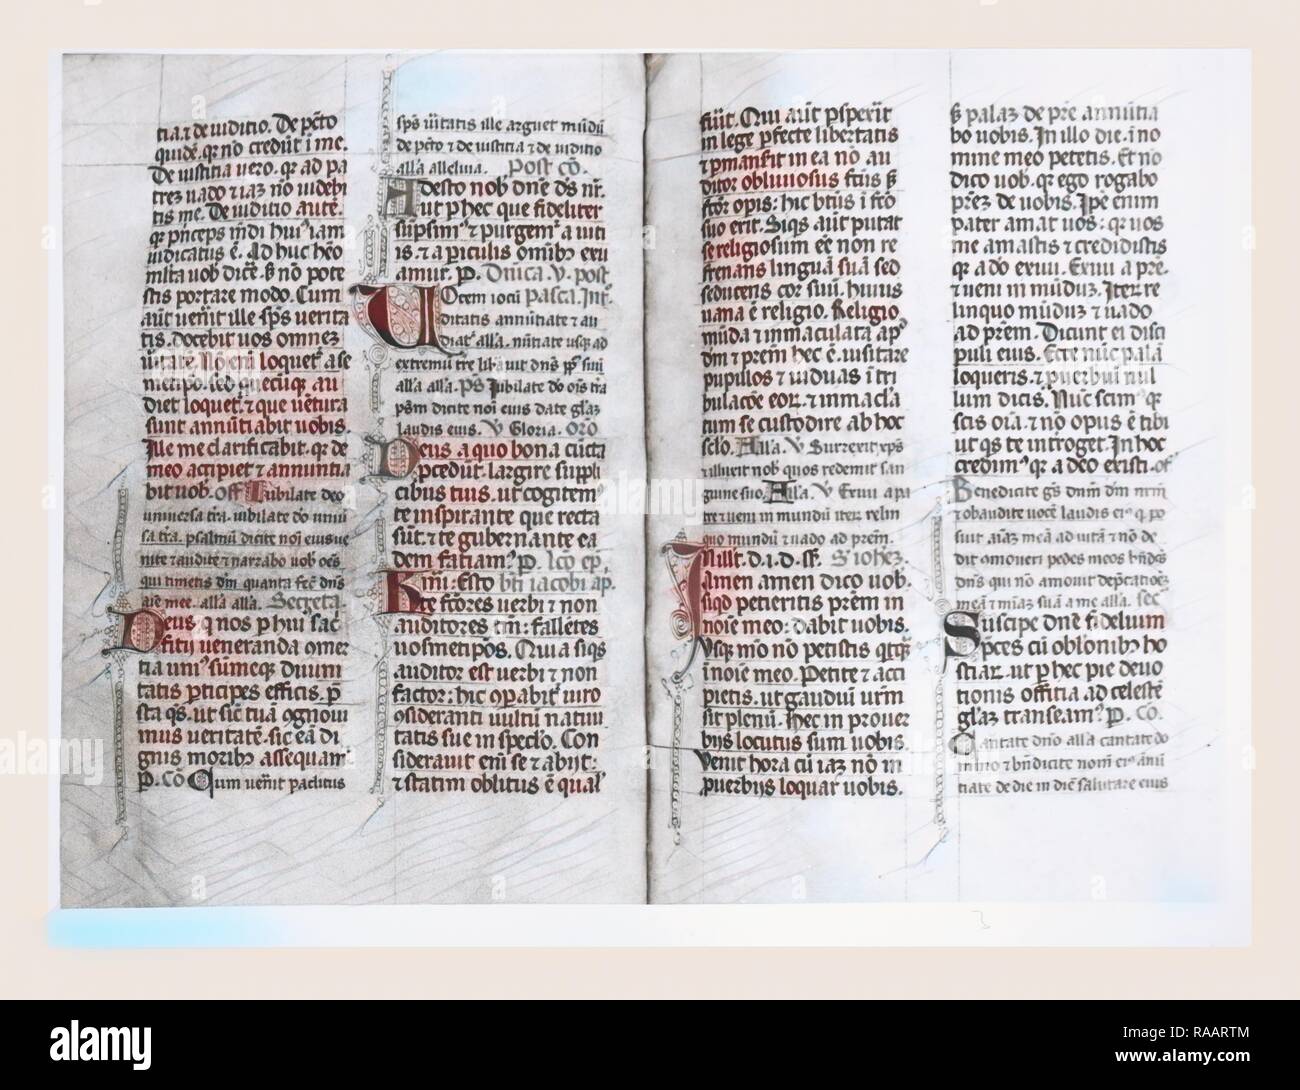 tia. et de iuditio. De pctō
quidē. qr nō credūt ī me.
De iustitia uero. qr ad pa
trez uado et iaz nō uidebi
tis me. De iuditio autē.
qr pnceps mūdi huiꝰ iam
iudicatus ē. Ad huc hēo
mlta uob dicē. sz nō pote
stis portare modo. Cum
aūt uenit ille sps uerita
tis. docebit uos omnez
uitatē. Nō eni loquetr a se
metipo. sed quecūqr au
diet loquetr. et que uētura
sunt annūtiabit uobis.
Ille me clarificabit. qr de
meo accipiet et annuntia
bit uob. off Iubilate deo
uniuersa tra. iubilate dō uniū
sa tra. psalmū dicite noī eius ue
nite et audite et narrabo uob oēs
qui timetis dm quanta fec dns
aīe mee. alla alla. Secreta.
Deus q nos p hui sac
fitij ueneranda comer
tia uniꝰ sumeqr diuini
tatis pticipes efficis. p
sta qs. ut sic tuā cognoui
mus ueritatē. sic eā di
gnis moribꝫ assequamr
P. Cō Cum uenit paclitus
sps uītatis ille arguet mūdū
de pctō et de iustitia et de iuditio
alla alleluia. Post cō.
Adesto nob dnē ds nr.
ut p hec que fideliter
supsimꝰ et purgemr a uiti
is. et a piculis omībꝫ eru
amur. P. Dnica. v. post
Uocem iocū pasca. Intr.
ditatis annūtiate et au
diatr alla. nūtiate usqꝫ ad
extremū tre libauit dns pp suū
alla alla. Ps Iubilate dō ois tra
psm dicite noī eius date glaz
laudis eius. V Gloria. Orō
Deus a quo bona cūcta
pcedūt. largire suppli
cibus tuis. ut cogitemꝰ
te inspirante que recta
sūt. et te gubernante ea
dem fatiamꝰ. P. Lcō ep.
Kmi: Esto btī iacobi ap.
te fctores uerbi et non
auditores tm: fallētes
uosmetipos. Quia siqs
auditor est uerbi et non
factor: hic cōpabitr uiro
cōsideranti uultū natiui
tatis sue in speclo. Con
siderauit eni se et abijt:
et statim oblitus ē qualꝰ
fuīt. Qui aūt pspexit
in lege pfecte libertatis
et pmanserit in ea nō au
ditor obliuiosus fctus sz
fctor opis: hic btus ī fcō
suo erit. Siqs aūt putat
se religiosum eē non re
frenans linguā suā sed
seducens cor suū. huius
uana ē religio. Religio
mūda et immaculata apꝰ
dm et prem hec ē. uisitare
pupillos et uiduas ī tri
bulacōe eor. et inmacla
tum se custodire ab hoc
sclo. Alla. V Surrexit xps
et illuxit nob quos redemit san
guine suo. Alla. V Exiui a pa
tre et ueni in mundū itez relin
quo mundū et uado ad prem.
In illt. d. i. d. s. S iohez
Amen amen dico uob.
siqd petieritis prem in
noīe meo: dabit uobis.
Usqꝫ mō nō petistis qcqꝫ
inoīe meo. Petite et acci
pietis. ut gaudiū urm
sit plenū. Hec in prouer
bijs locutus sum uobis.
Venit hora cū iaz nō in
puerbijs loquar uobis.
sz palaz de pre annūtia
bo uobis. In illo die. ī no
mine meo petetis. Et nō
dico uob. qr ego rogabo
prez de uobis. Ipe enim
pater amat uos: qr uos
me amastis et credidistis
qr a dō exiui. Exiui a pre.
et ueni in mūduz. Iter re
linquo mūduz et uado
ad prem. Dicunt ei disci
puli eius. Ecce nūc palā
loqueris. et puerbiū nul
lum dicis. Nuc scimꝰ qr
scis oīa. et nō opus ē tibi
ut qs te introget. In hoc
credimꝰ qr a deo existi. of
Benedicite gs dnm dm nrm
et obaudite uocē laudis eiꝰ q po
suit aīaz meā ad uitā et nō de
dit cōmoueri pedes meos bndcs
dns qui nō amouit depcatioez
meā et mīaz suā a me alla. Sec
Suscipe dnē fidelium
pces cū oblonibꝫ ho
stiar. ut p hec pie deuo
tionis offitia ad celestē
glaz transeamꝰ. P. Cō.
Cantate dno alla cantate dō
mino et bndicite nom eiꝰ anū
tiate de die in diē salutare eius
3
alamy
Image ID: RAARTM
www.alamy.com